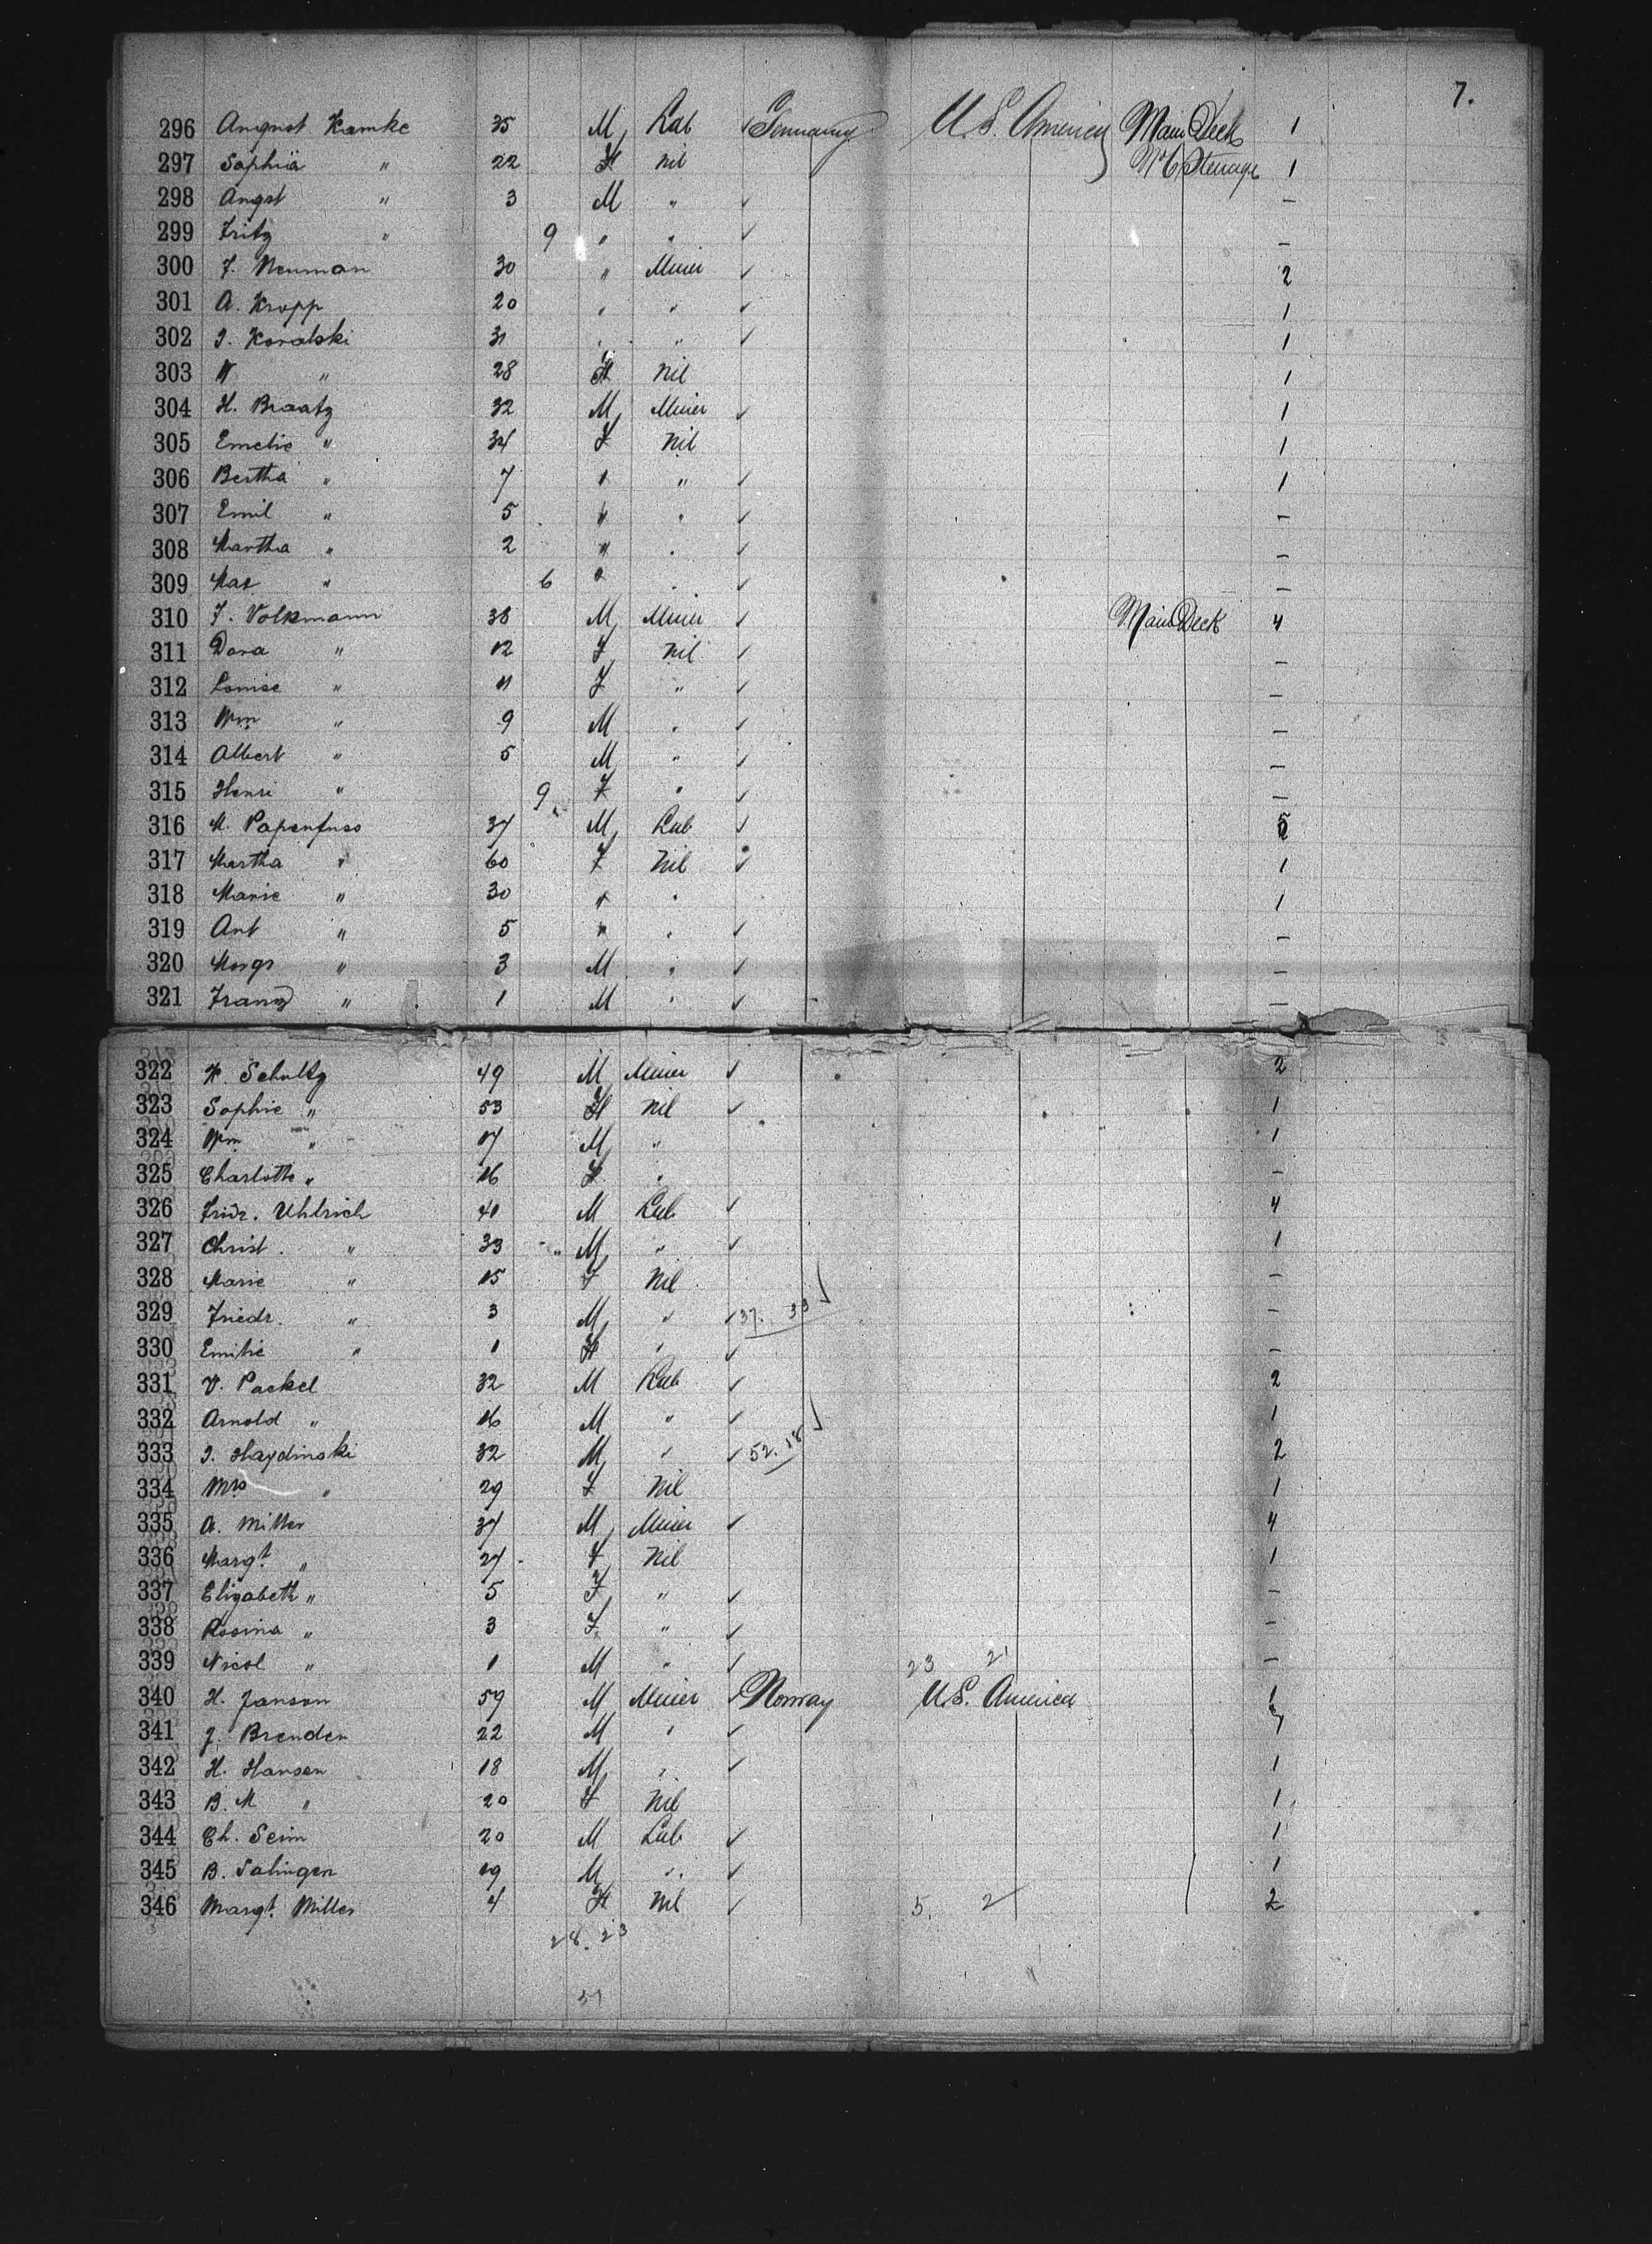 7.
296 August Kamke 35 M Lab ✓ Germany U.S. America Main Deck 1
297 Sophia " 22 F Nil Steerage 1
298 Augst " 3 M " ✓ –
299 Fritz " 9 " " ✓ –
300 F. Neuman 30 " Miner ✓ 2
301 A. Kropp 20 " " ✓ 1
302 I. Kovalski 31 " " ✓ 1
303 W " 28 F Nil 1
304 H. Braatz 32 M Miner ✓ 1
305 Emelie " 34 F Nil 1
306 Bertha " 7 " " ✓ 1
307 Emil " 5 " " ✓ –
308 Martha " 2 " " ✓ –
309 " 6 " " ✓ –
310 F. Volkmann 38 M Miner ✓ Main Deck 4
311 Dora " 12 F Nil ✓ –
312 Louise " 11 F " ✓ –
313 Wm " 9 M " ✓ –
314 Albert " 5 M " ✓ –
315 Henri " 9 F " ✓ –
316 M. Papenfuss 37 M Lab ✓ 5
317 Martha " 60 F Nil ✓ 1
318 Marie " 30 " " 1
319 Ant " 5 " " ✓ –
320 " 3 M " ✓ –
321 Franz " 1 M " ✓ –
322 K. Schultz 49 M Miner ✓ 2
323 Sophie " 53 F Nil ✓ 1
324 Wm " 17 M " 1
325 Charlotte " 16 F " –
326 Fridr. Uhlrich 41 M Lab ✓ 4
327 Christ. " 33 M " ✓ 1
328 Marie " 15 F Nil –
329 Friedr. " 3 M " ✓ 37. 33 ✓ –
330 Emilie " 1 F " ✓ –
331 V. Packel 32 M Lab ✓ 2
332 Arnold " 16 M " ✓ 1
333 I. Haydinski 32 M " ✓ 52. 18 ✓ 2
334 Mrs " 29 F Nil 1
335 A. Miller 37 M Miner ✓ 4
336 Margt. " 27 F Nil 1
337 Elizabeth " 5 F " ✓ –
338 Rosina " 3 F " ✓ –
339 Nicol " 1 M " ✓ 23 21 –
340 H. Janson 59 M Miner ✓ Norway U.S. America 1
341 J. Brenden 22 M " ✓ 1
342 H. Hansen 18 M " ✓ 1
343 B. M " 20 F Nil 1
344 Ch. Seim 20 M Lab ✓ 1
345 B. Salingen 19 M " ✓ 1
346 Margt. Miller 4 F Nil ✓ 5. 2 2
28. 23
51